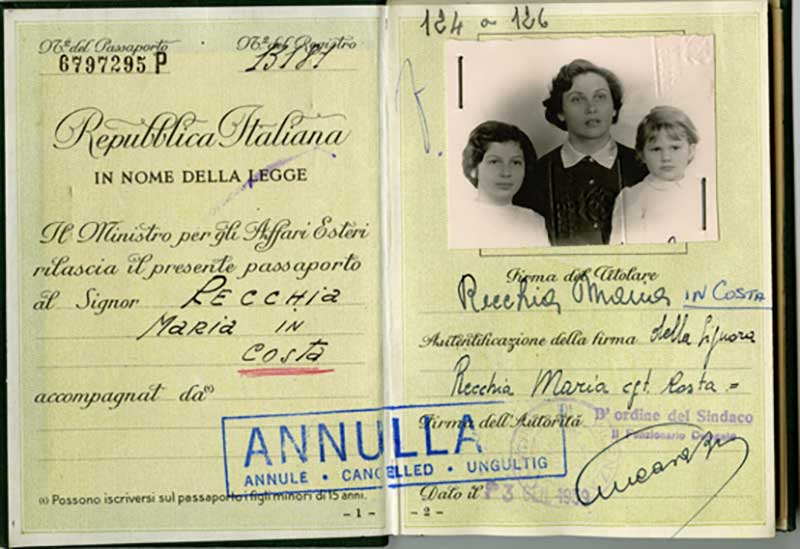 Nº del Passaporto
6797295 P
Nº del Registro
Repubblica Italiana
IN NOME DELLA LEGGE
Il Ministro per gli Affari Esteri
rilascia il presente passaporto
al Signor RECCHIA
MARIA IN
COSTA
accompagnat da(1)
(1) Possono iscriversi sul passaporto i figli minori di 15 anni.
- 1 -
124 a 126
Firma del Titolare
Recchia Maria IN COSTA
Autentificazione della firma della Signora
Recchia Maria cgt. Costa =
Firma dell'Autorità
D'ordine del Sindaco
Il Funzionario Delegato
Dato il
- 2 -
ANNULLA
ANNULE · CANCELLED · UNGULTIG